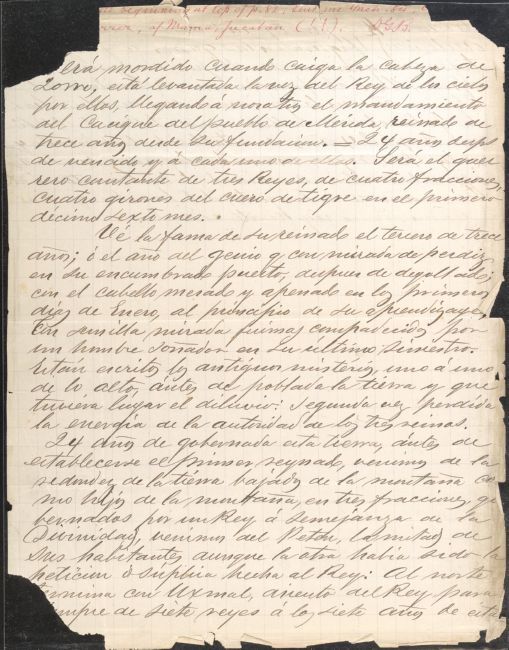 beginning at top of p.
of Mama, Yucatan (!!).
Será mordido cuando caiga la cabeza de
Zorro, está levantada la voz del Rey de los cielos
por ellos, llegando á nosotros el mandamiento
del Cacique del pueblo de Mérida, reinado de
trece años desde su fundacion. = 24 años desps
de vencido y á cada uno de ellos. Será el guer
rero constante de tres Reyes, de cuatro fracciones,
cuatro girones del cuero de tigre en el primero
décimo sexto mes.
Vé la fama de su reinado el tercero de trece
años; ó el año del genio q con mirada de perdiz
en su encumbrado puesto, despues de degollado;
con el cabello mesado y apenado en los primeros
dias de Enero, al principio de su aprendizage
Con sencilla mirada fuimos compadecidos por
un hombre soñador en su último siniestro.
Estan escritos los antiguos misterios uno á uno
de lo alto, antes de poblada la tierra y que
tuviera lugar el diluvio: segunda vez perdida
la energia de la autoridad de los tres reinos.
24 años de gobernada esta tierra, ántes de
establecerse el primer reynado, venimos de la
redondez de la tierra bajados de la montaña co
mo hijos de la montaña, en tres fracciones, go
bernados por un Rey á semejanza de la
venimos del Peten, la mitad de
sus habitantes aunque la otra habia sido la
peticion ó súplica hecha al Rey: Al norte
termina con Uxmal, asiento del Rey para
siempre de siete reyes á los siete años de esta